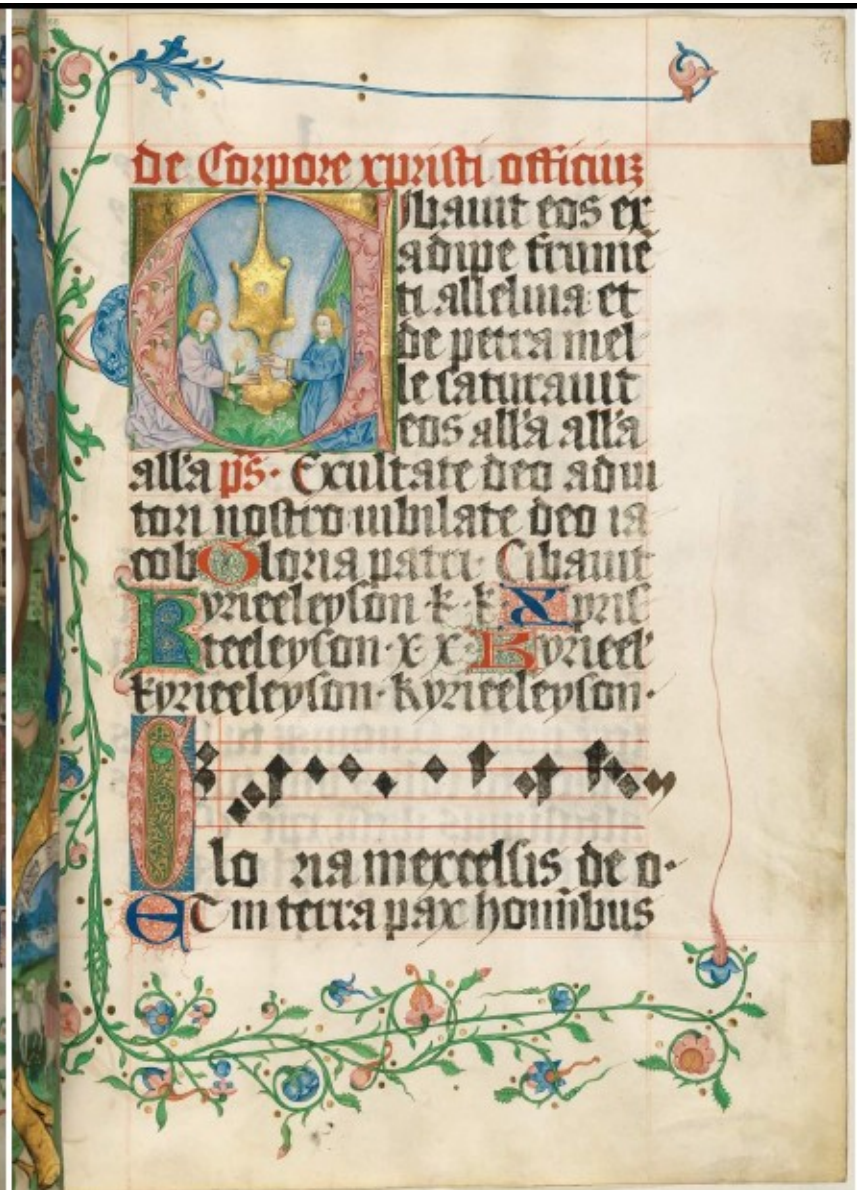 de Corpore xpristi officiuz
Cibauit eos ex
adipe frumē
ti alleluia et
de petra mel
le saturauit
eos all'a all'a
all'a ps. Exultate deo adiu
tori nostro iubilate deo ia
cob Gloria patri. Cibauit
Kyrieeleyson. k. k. Xpris
teeleyson. x x Kyrieel'
kyrieeleyson. Kyrieeleyson.
Glo ria in excelsis de o.
ET in terra pax homībus